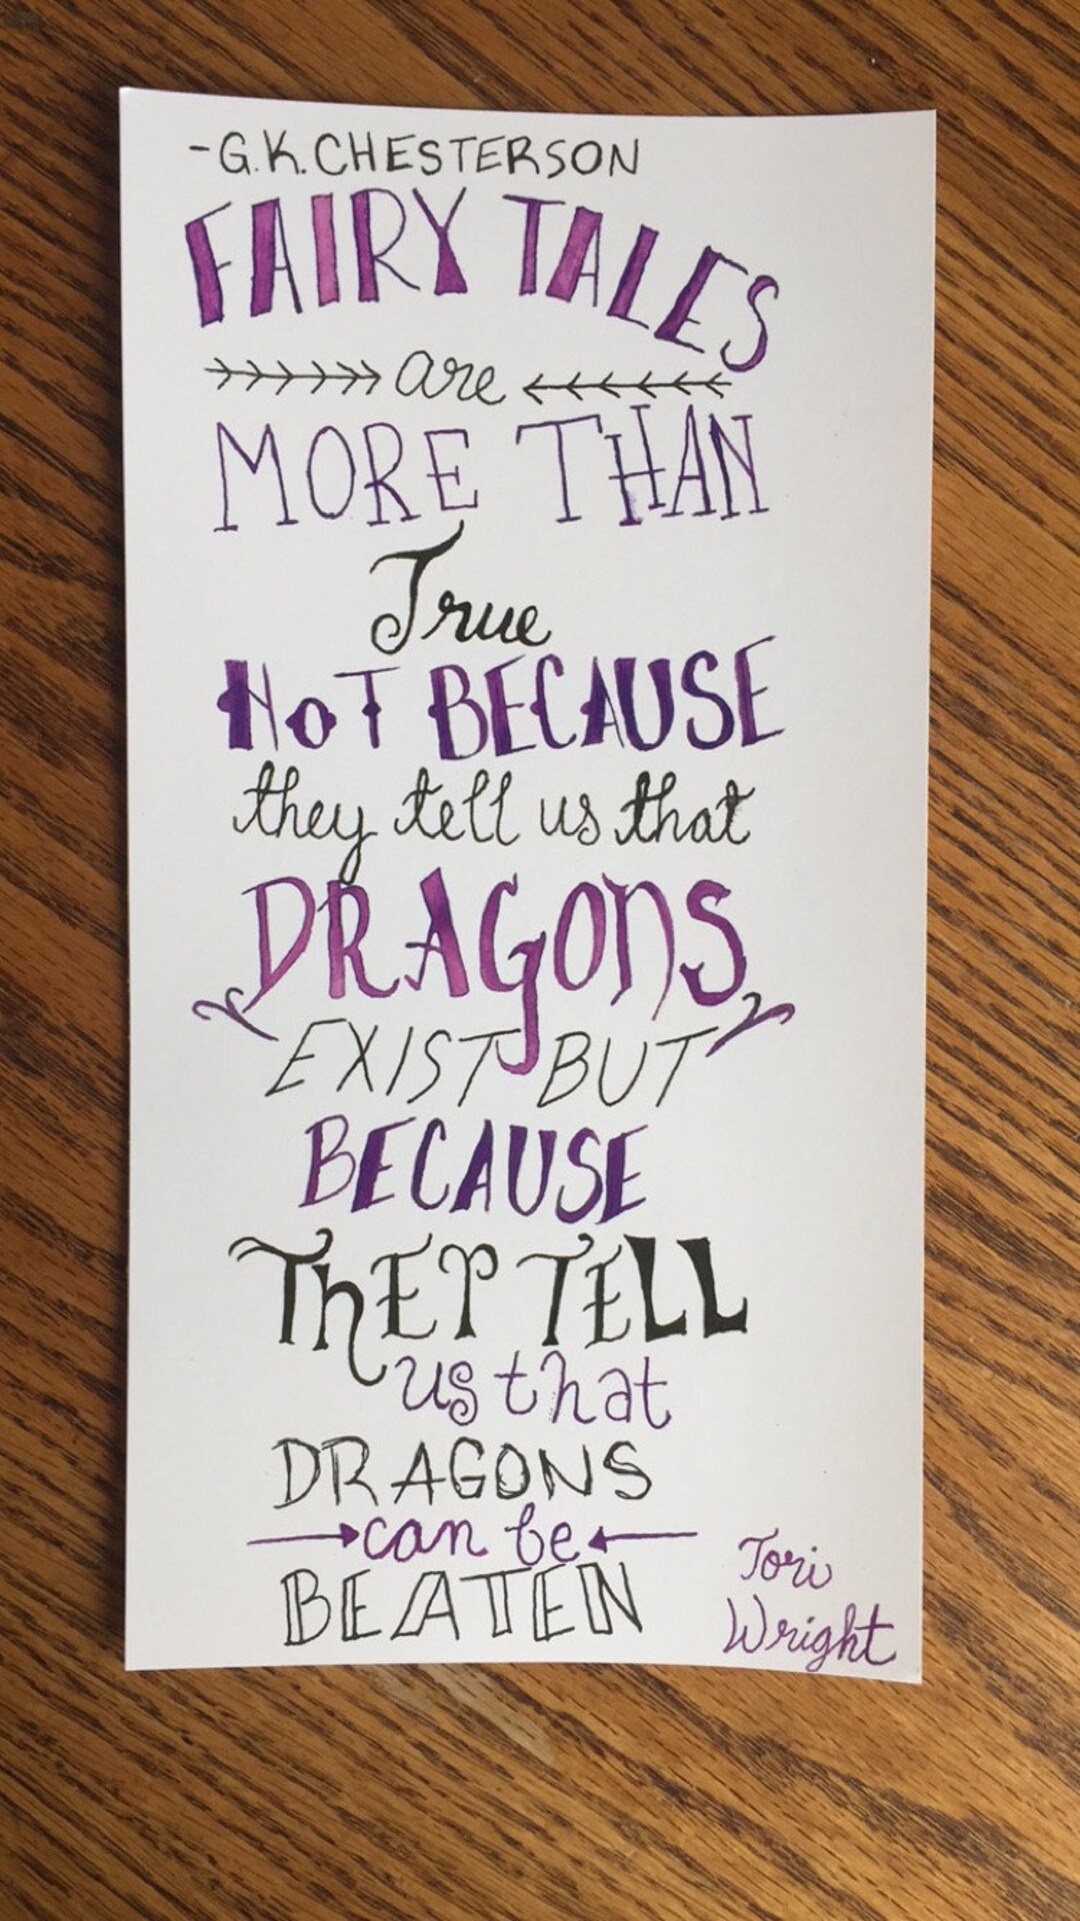 -G.K.CHESTERSON
FAIRY TALES
are
MORE THAN
True
NoT BECAUSE
they tell us that
DRAGONS
EXIST BUT
BECAUSE
ThEY TELL
us that
DRAGONS
can be
BEATEN
Tori
Wright